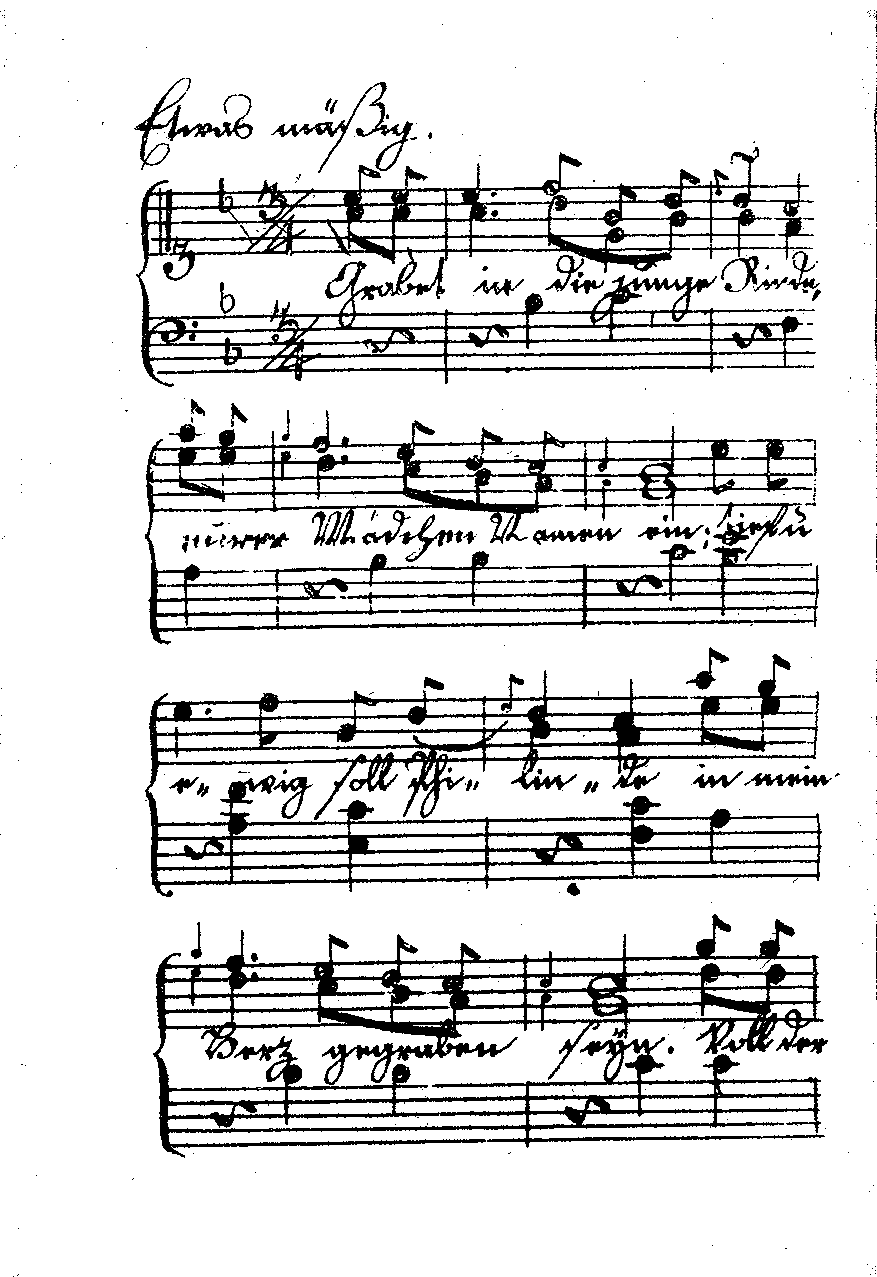 Etwas mäßig.
Grabet in die junge Rinde,
eurer Mädchen Namen ein; tief u
e„ wig soll Phi„ lin „ de in mein
Herz gegraben seyn. Voll der